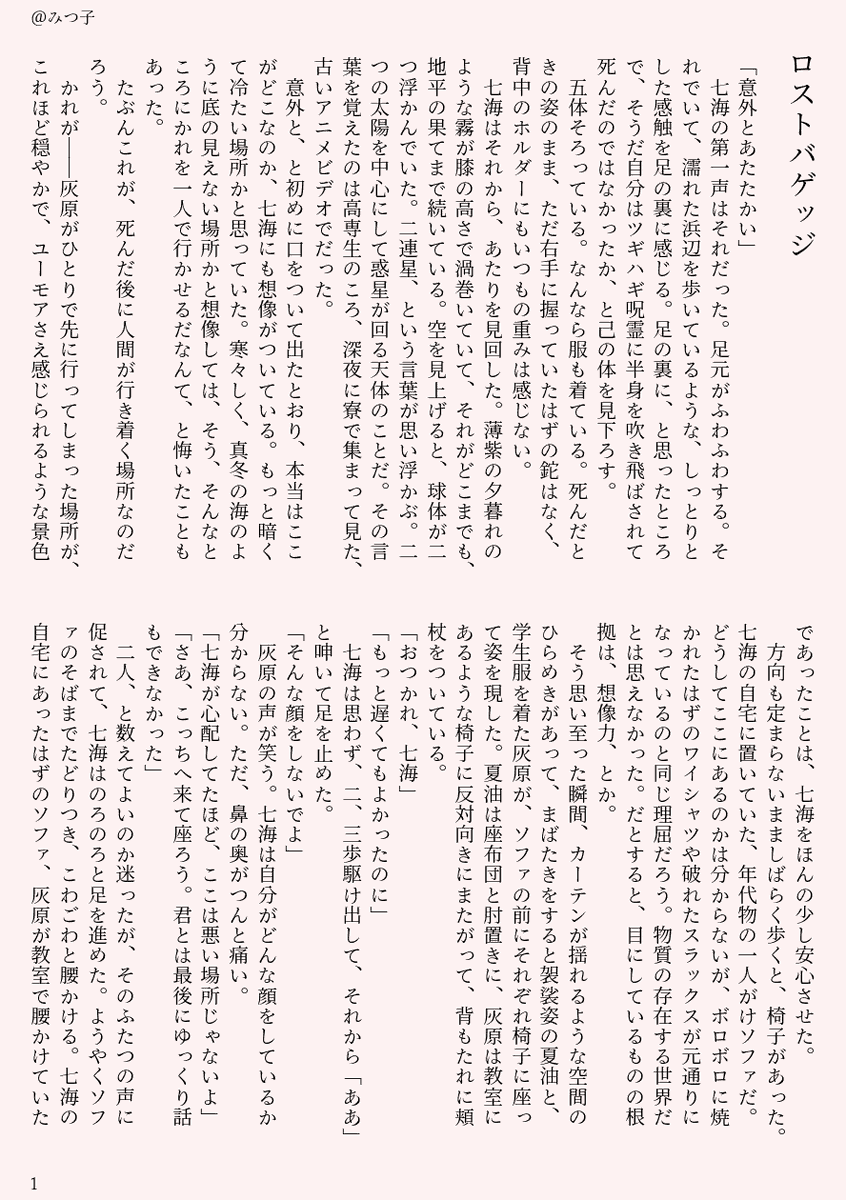 @みつ子
ロストバゲッジ
「意外とあたたかい」
　七海の第一声はそれだった。足元がふわふわする。そ
れでいて、濡れた浜辺を歩いているような、しっとりと
した感触を足の裏に感じる。足の裏に、と思ったところ
で、そうだ自分はツギハギ呪霊に半身を吹き飛ばされて
死んだのではなかったか、と己の体を見下ろす。
　五体そろっている。なんなら服も着ている。死んだと
きの姿のまま、ただ右手に握っていたはずの鉈はなく、
背中のホルダーにもいつもの重みは感じない。
　七海はそれから、あたりを見回した。薄紫の夕暮れの
ような霧が膝の高さで渦巻いていて、それがどこまでも、
地平の果てまで続いている。空を見上げると、球体が二
つ浮かんでいた。二連星、という言葉が思い浮かぶ。二
つの太陽を中心にして惑星が回る天体のことだ。その言
葉を覚えたのは高専生のころ、深夜に寮で集まって見た、
古いアニメビデオでだった。
　意外と、と初めに口をついて出たとおり、本当はここ
がどこなのか、七海にも想像がついている。もっと暗く
て冷たい場所かと思っていた。寒々しく、真冬の海のよ
うに底の見えない場所かと想像しては、そう、そんなと
ころにかれを一人で行かせるだなんて、と悔いたことも
あった。
　たぶんこれが、死んだ後に人間が行き着く場所なのだ
ろう。
　かれが――灰原がひとりで先に行ってしまった場所が、
これほど穏やかで、ユーモアさえ感じられるような景色
であったことは、七海をほんの少し安心させた。
　方向も定まらないまましばらく歩くと、椅子があった。
七海の自宅に置いていた、年代物の一人がけソファだ。
どうしてここにあるのかは分からないが、ボロボロに焼
かれたはずのワイシャツや破れたスラックスが元通りに
なっているのと同じ理屈だろう。物質の存在する世界だ
とは思えなかった。だとすると、目にしているものの根
拠は、想像力、とか。
　そう思い至った瞬間、カーテンが揺れるような空間の
ひらめきがあって、まばたきをすると袈裟姿の夏油と、
学生服を着た灰原が、ソファの前にそれぞれ椅子に座っ
て姿を現した。夏油は座布団と肘置きに、灰原は教室に
あるような椅子に反対向きにまたがって、背もたれに頬
杖をついている。
「おつかれ、七海」
「もっと遅くてもよかったのに」
　七海は思わず、二、三歩駆け出して、それから「ああ」
と呻いて足を止めた。
「そんな顔をしないでよ」
　灰原の声が笑う。七海は自分がどんな顔をしているか
分からない。ただ、鼻の奥がつんと痛い。
「七海が心配してたほど、ここは悪い場所じゃないよ」
「さあ、こっちへ来て座ろう。君とは最後にゆっくり話
もできなかった」
　二人、と数えてよいのか迷ったが、そのふたつの声に
促されて、七海はのろのろと足を進めた。ようやくソフ
ァのそばまでたどりつき、こわごわと腰かける。七海の
自宅にあったはずのソファ、灰原が教室で腰かけていた
1